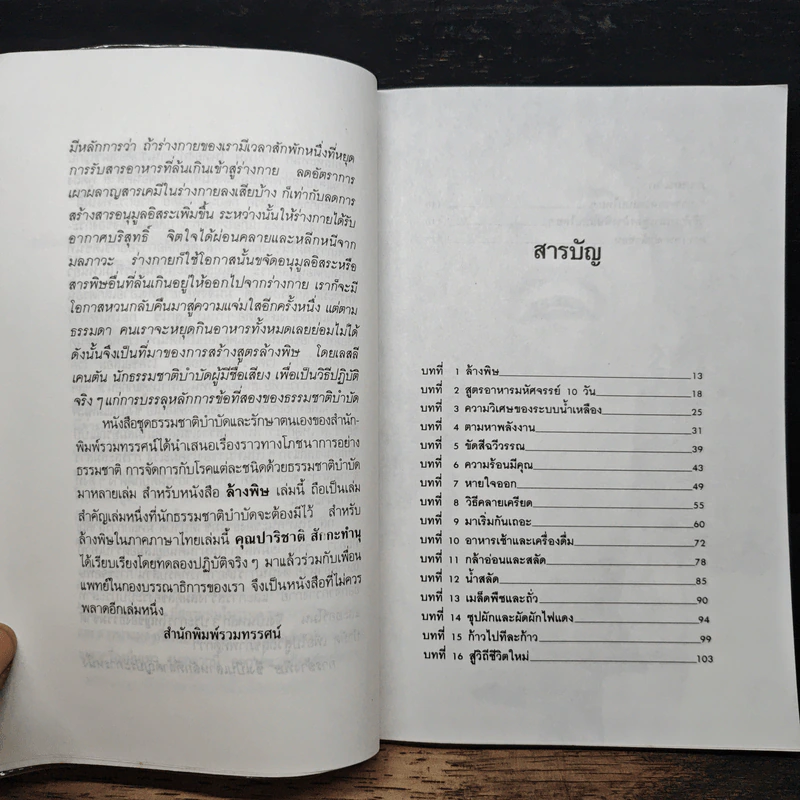 มีหลักการว่า ถ้าร่างกายของเรามีเวลาสักพักหนึ่งที่หยุด
การรับสารอาหารที่ล้นเกินเข้าสู่ร่างกาย ลดอัตราการ
เผาผลาญสารเคมีในร่างกายลงเสียบ้าง ก็เท่ากับลดการ
สร้างสารอนุมูลอิสระเพิ่มขึ้น ระหว่างนั้นให้ร่างกายได้รับ
อากาศบริสุทธิ์ จิตใจได้ผ่อนคลายและหลีกหนีจาก
มลภาวะ ร่างกายก็ใช้โอกาสนั้นขจัดอนุมูลอิสระหรือ
สารพิษอื่นที่ล้นเกินอยู่ให้ออกไปจากร่างกาย เราก็จะมี
โอกาสหวนกลับคืนมาสู่ความแจ่มใสอีกครั้งหนึ่ง แต่ตาม
ธรรมดา คนเราจะหยุดกินอาหารทั้งหมดเลยย่อมไม่ได้
ดังนั้นจึงเป็นที่มาของการสร้างสูตรล้างพิษ โดยเลสลี
เคนตัน นักธรรมชาติบำบัดผู้มีชื่อเสียง เพื่อเป็นวิธีปฏิบัติ
จริง ๆ แก่การบรรลุหลักการข้อที่สองของธรรมชาติบำบัด
หนังสือชุดธรรมชาติบำบัดและรักษาตนเองของสำนัก-
พิมพ์รวมทรรศน์ได้นำเสนอเรื่องราวทางโภชนาการอย่าง
ธรรมชาติ การจัดการกับโรคแต่ละชนิดด้วยธรรมชาติบำบัด
มาหลายเล่ม สำหรับหนังสือ ล้างพิษ เล่มนี้ ถือเป็นเล่ม
สำคัญเล่มหนึ่งที่นักธรรมชาติบำบัดจะต้องมีไว้ สำหรับ
ล้างพิษในภาคภาษาไทยเล่มนี้ คุณปาริชาติ สักกะทำนุ
ได้เรียบเรียงโดยทดลองปฏิบัติจริง ๆ มาแล้วร่วมกับเพื่อน
แพทย์ในกองบรรณาธิการของเรา จึงเป็นหนังสือที่ไม่ควร
พลาดอีกเล่มหนึ่ง
สำนักพิมพ์รวมทรรศน์
สารบัญ
บทที่ 1 ล้างพิษ 13
บทที่ 2 สูตรอาหารมหัศจรรย์ 10 วัน 18
บทที่ 3 ความวิเศษของระบบน้ำเหลือง 25
บทที่ 4 ตามหาพลังงาน 31
บทที่ 5 ขัดสีฉวีวรรณ 39
บทที่ 6 ความร้อนมีคุณ 43
บทที่ 7 หายใจออก 49
บทที่ 8 วิธีคลายเครียด 55
บทที่ 9 มาเริ่มกันเถอะ 60
บทที่ 10 อาหารเช้าและเครื่องดื่ม 72
บทที่ 11 กล้าอ่อนและสลัด 78
บทที่ 12 น้ำสลัด 85
บทที่ 13 เมล็ดพืชและถั่ว 90
บทที่ 14 ซุปผักและผัดผักไฟแดง 94
บทที่ 15 ก้าวไปทีละก้าว 99
บทที่ 16 สู่วิถีชีวิตใหม่ 103